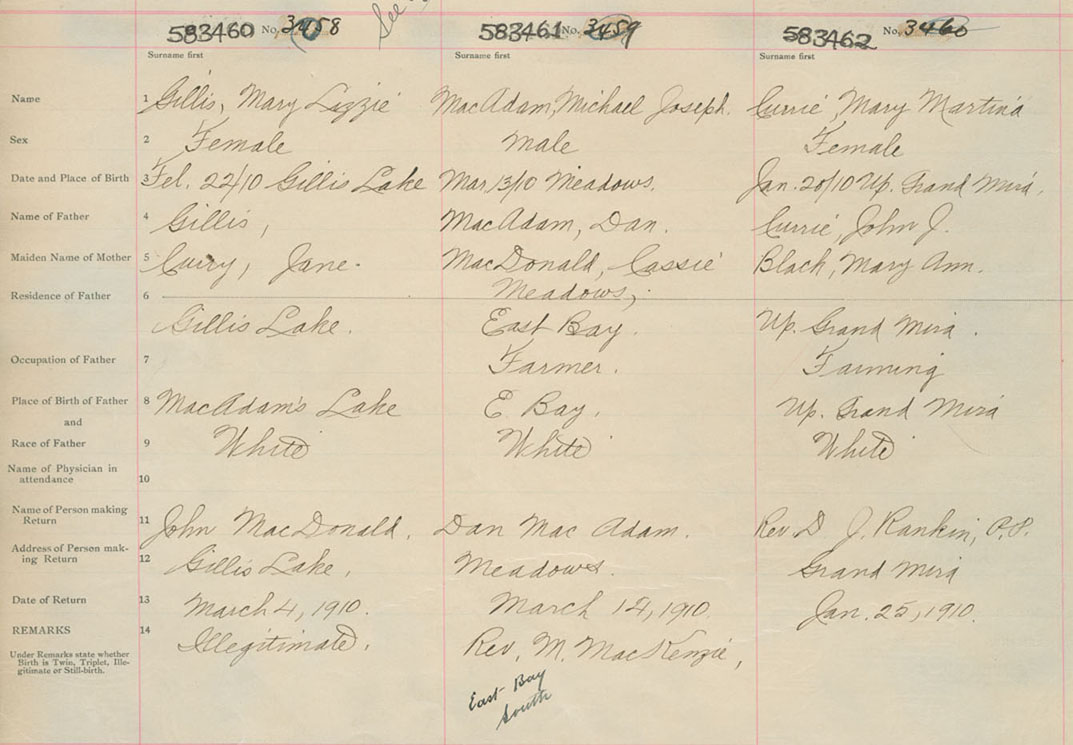 583460 No. 3458
583461 No. 3459
583462 No. 3460
See
Surname first
Surname first
Surname first
Name 1 Gillis, Mary Lizzie MacAdam, Michael Joseph. Currie, Mary Martina
Sex 2 Female Male Female
Date and Place of Birth 3 Feb. 22/10 Gillis Lake Mar 13/10 Meadows. Jan. 20/10 Up. Grand Mira.
Name of Father 4 Gillis, MacAdam, Dan. Currie, John J.
Maiden Name of Mother 5 Curry, Jane. MacDonald, Cassie Black, Mary Ann.
Residence of Father 6 Meadows,
Gillis Lake. East Bay. Up. Grand Mira.
Occupation of Father 7 Farmer. Farming
Place of Birth of Father 8 MacAdam's Lake E Bay. Up. Grand Mira
and
Race of Father 9 White White White
Name of Physician in
attendance 10
Name of Person making
Return 11 John MacDonald. Dan Mac Adam. Rev. D. J. Rankin, P.P.
Address of Person mak-
ing Return 12 Gillis Lake, Meadows. Grand Mira
Date of Return 13 March 4, 1910. March 14, 1910. Jan. 25, 1910.
REMARKS 14 Illegitimate. Rev. M. MacKenzie,
Under Remarks state whether
Birth is Twin, Triplet, Ille-
gitimate or Still-birth.
East Bay
South